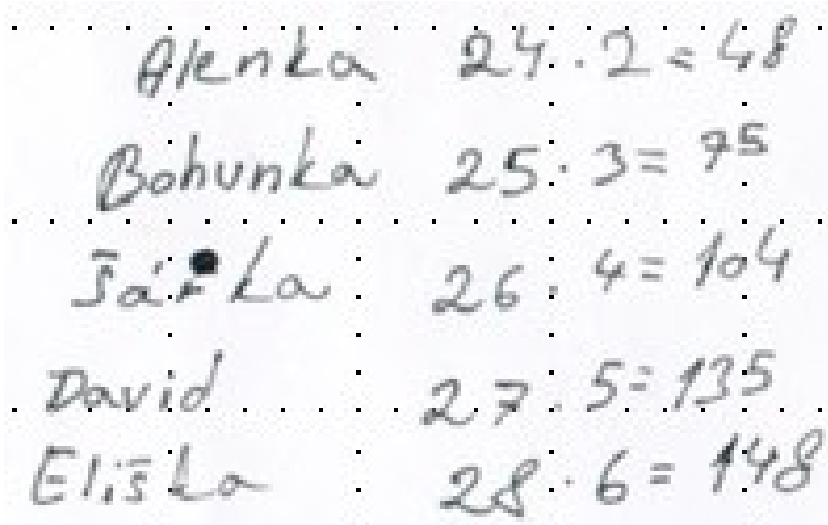 Alenka 24 · 2 = 48
Bohunka 25 · 3 = 75
Šárka 26 · 4 = 104
David 27 · 5 = 135
Eliška 28 · 6 = 148